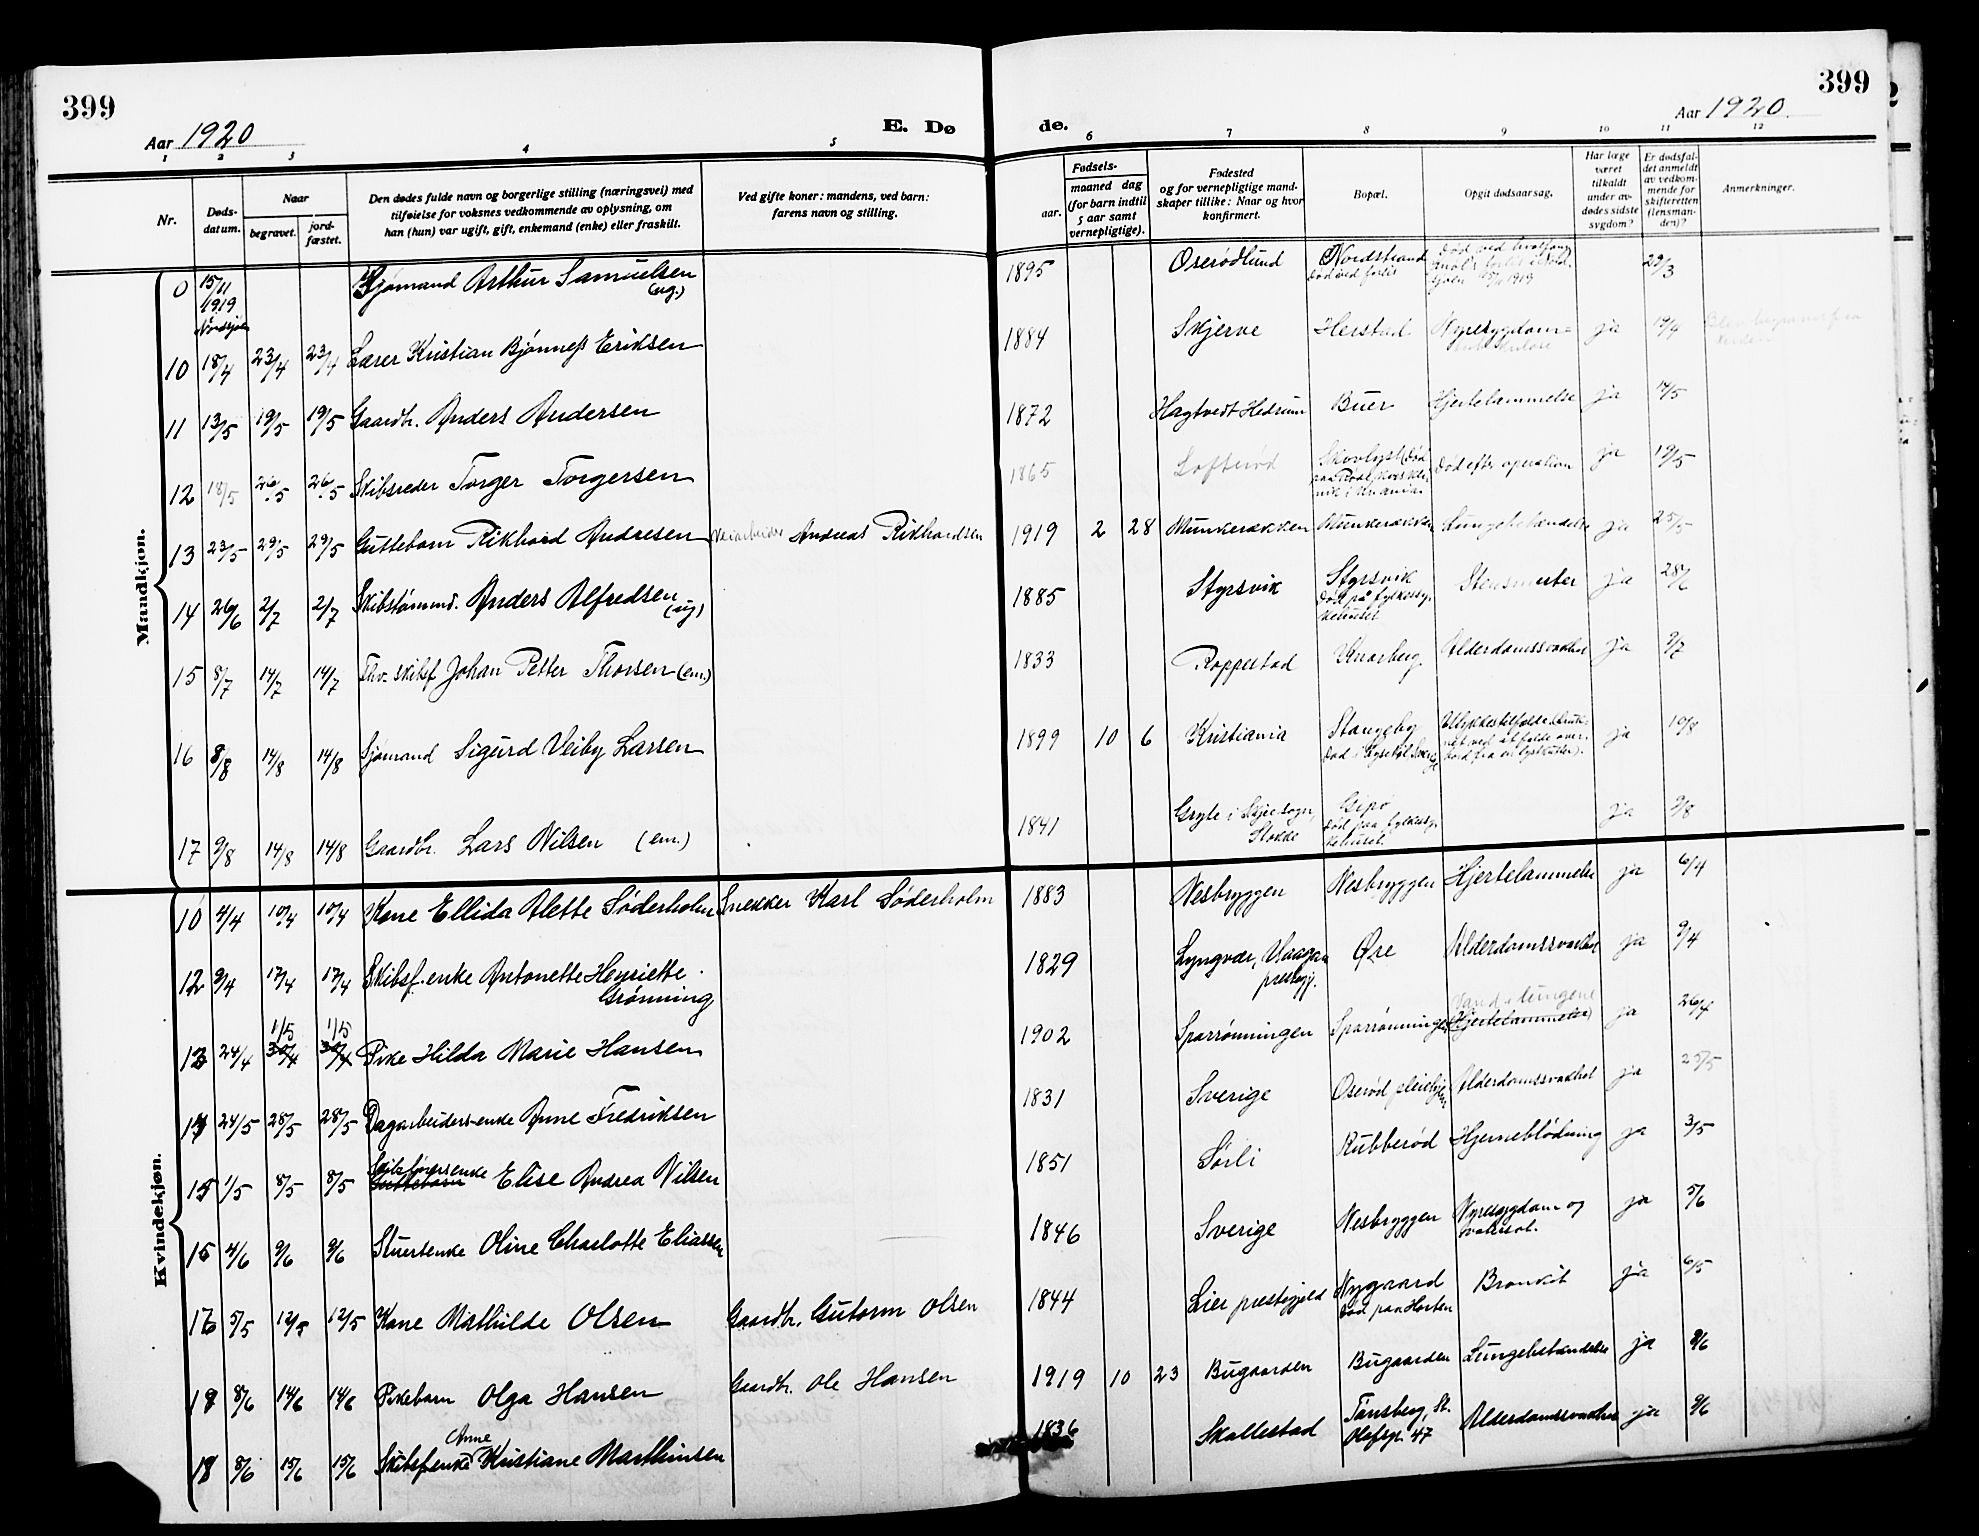 399
Aar 1920
E. Dø
de.
Aar 1920.
399
1 2 3 4 5 6 7 8 9 10 11 12
Nr.
Døds-
datum.
Naar
begravet.
jord-
fæstet.
Den dødes fulde navn og borgerlige stilling (næringsvei) med
tilføielse for voksnes vedkommende av oplysning, om
han (hun) var ugift, gift, enkemand (enke) eller fraskilt.
Ved gifte koner: mandens, ved barn:
farens navn og stilling.
Fødsels-
aar.
maaned dag
(for barn indtil
5 aar samt
vernepligtige).
Fødested
og for vernepligtige mand-
skaper tillike: Naar og hvor
konfirmert.
Bopæl.
Opgit dødsaarsag.
Har læge
været
tilkaldt
under av-
dødes sidste
sygdom?
Er dødsfal-
det anmeldt
av vedkom-
mende for
skifteretten
(lensman-
den)?
Anmerkninger.
Mandkjøn.
0 15/11 1919 Sjømand Arthur Samuelsen (ug.) 1895 Oserødlund Nordstrand 29/3
død ved forlis
10 18/4 23/4 23/4 Lærer Kristian Bjønness Eriksen 1884 Skjerve Herstad Nyresygdom ja 19/4
11 13/5 19/5 19/5 Gaardbr. Anders Andersen 1872 Hagtvedt Hedrum Buer Hjertelammelse ja 14/5
12 18/5 26/5 26/5 Skibsreder Torger Torgersen 1865 Lofterød Skovlyst (død død efter operation ja 19/5
13 23/5 29/5 29/5 Guttebarn Rikhard Andresen Veiarbeider Andreas Rikhardsen 1919 2 28 Munkerækken Munkerækken Lungebetændelse ja 25/5
14 26/6 2/7 2/7 Skibstømmd. Anders Alfredsen (ug) 1885 Styrsvik Styrsvik ja 28/6
død på fylkessy-
kehuset
15 8/7 14/7 14/7 Fhv. skibsf. Johan Petter Thorsen (em.) 1833 Roppestad Knarberg Alderdomssvakhet ja 9/7
16 8/8 14/8 14/8 Sjømand Sigurd Veiby Larsen 1899 10 6 Kristiania Stangeby Ulykkestilfælde (druk- ja 10/8
død i Lysekil, Sverige
net ved at falde over-
bord fra en lystkutter).
17 9/8 14/8 14/8 Gaardbr. Lars Nilsen (em.) 1841 Gryte i Skjee sogn, Stokke Gipø ja 9/8
død paa fylkessy-
kehuset.
Kvindekjøn.
10 4/4 10/4 10/4 Kone Ellida Alette Søderholm Snekker Karl Søderholm 1883 Nesbryggen Nesbryggen Hjertelammelse ja 6/4
12 9/4 17/4 17/4 Skibsf. enke Antonette Henriette Grønning 1829 Lyngvær, Vaagan prestegj. Øre Alderdomssvakhet ja 9/4
1/5 1/5
24/4 30/4 30/4 Pike Hilda Marie Hansen 1902 Sparrønningen Sparrønningen Vand i lungene (Hjertelammelse) ja 26/4
24/5 28/5 28/5 Dagarbeiders-enke Anne Fredriksen 1831 Sverige Oserød pleiehjem Alderdomssvakhet ja 25/5
15 1/5 8/5 8/5 Skibsførersenke Guttebarn Elise Andrea Nilsen 1851 Sørli Rubberød Hjerneblødning ja 3/5
15 4/6 9/6 9/6 Stuertenke Oline Charlotte Eliassen 1846 Sverige Nesbryggen Nyresygdom og ja 5/6
16 5/5 12/5 12/5 Kone Mathilde Olsen Gaardbr. Gutorm Olsen 1844 Lier prestegjeld Nygaard Bronkit ja 6/5
død paa Horten
8/6 14/6 14/6 Pikebarn Olga Hansen Gaardbr. Ole Hansen 1919 10 23 Bugaarden Bugaarden Lungebetændelse ja 9/6
18 8/6 15/6 15/6 Skibsf.enke Anne Kristiane Marthinsen 1836 Skallestad Tønsberg, St. Olafsgt. 47 Alderdomssvakhet ja 9/6